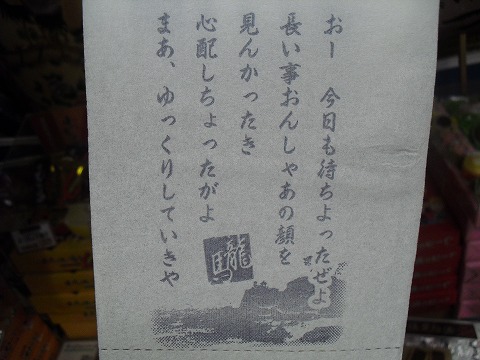 おー　今日も待ちよったぜよ
長い事おんしゃあの顔を
見んかったき
心配しちょったがよ
まあ、ゆっくりしていきや
龍馬